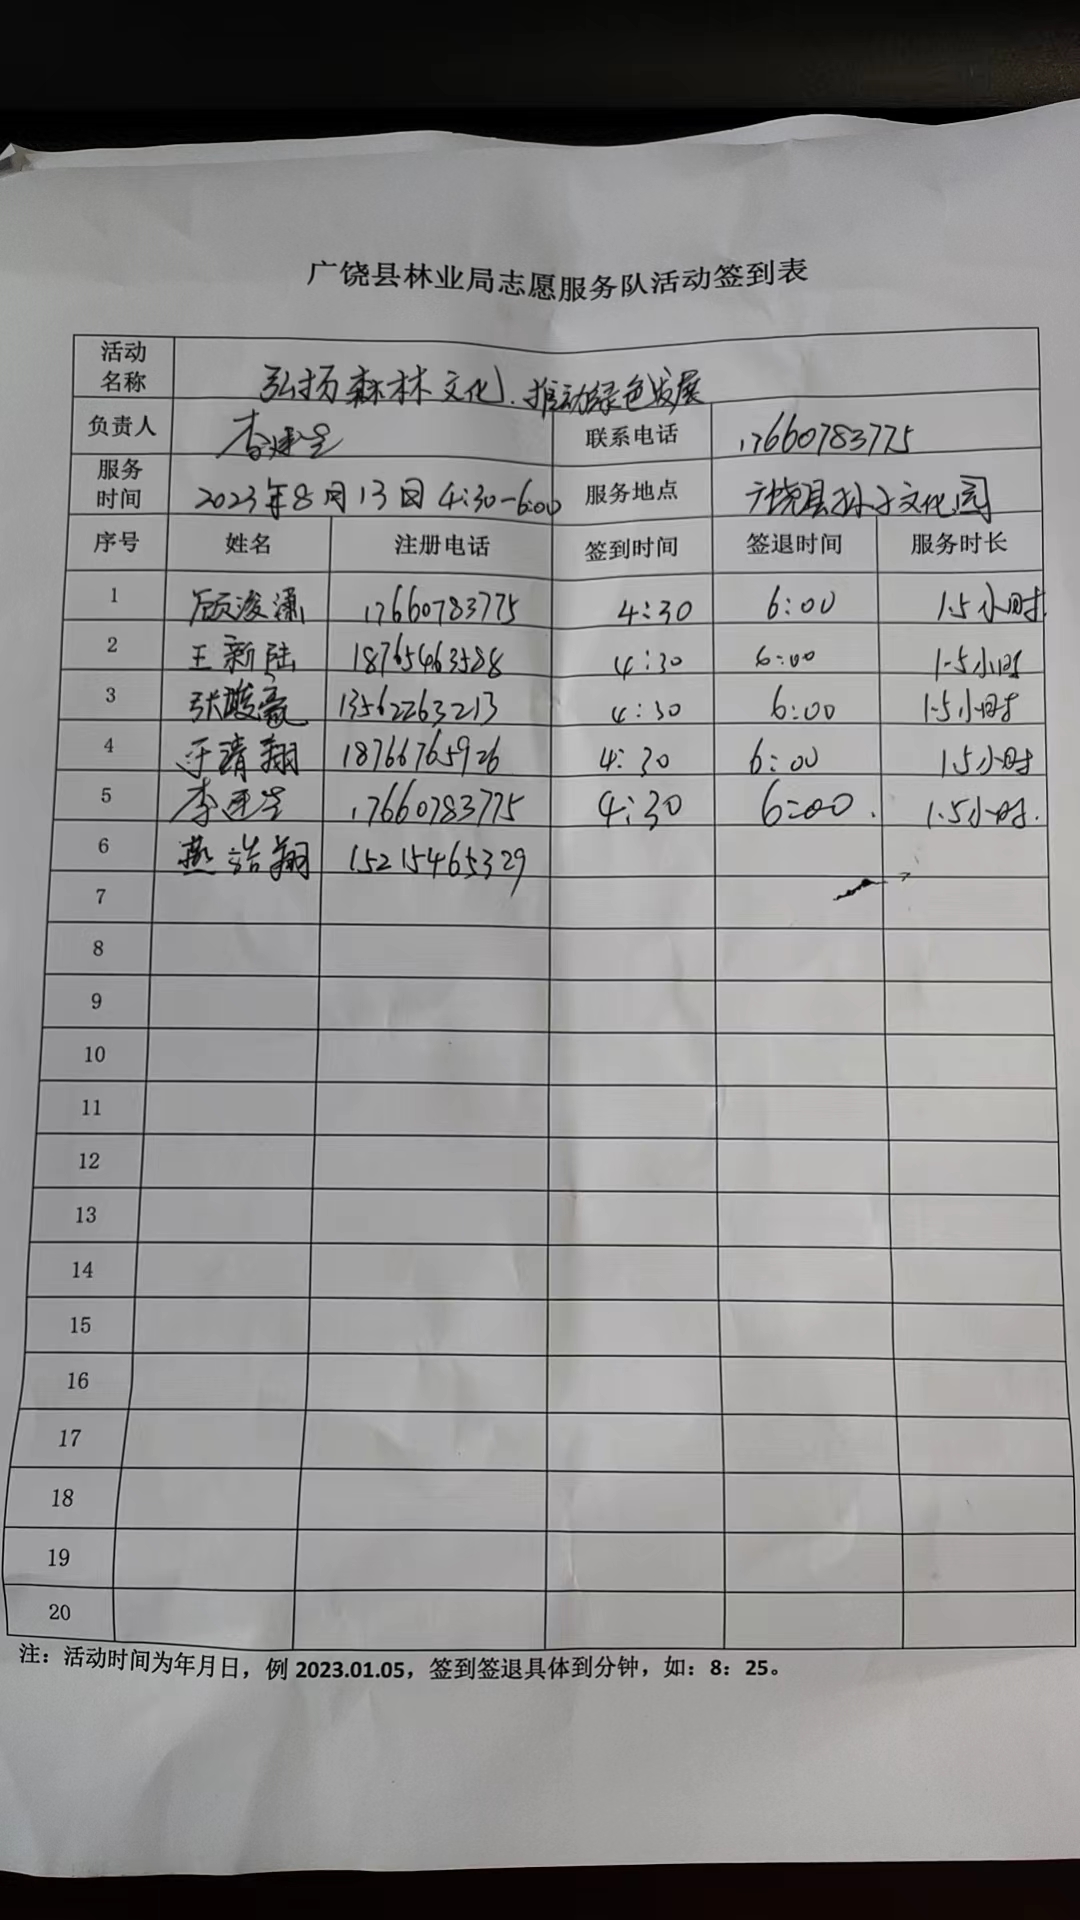 广饶县林业局志愿服务队活动签到表
活动名称 弘扬森林文化、推动绿色发展
负责人 李建呈 联系电话 17660783775
服务时间 2023年8月13日 4:30-6:00 服务地点 广饶县孙子文化园
序号 姓名 注册电话 签到时间 签退时间 服务时长
1 顾浚潇 17660783775 4:30 6:00 1.5小时.
2 王新陆 18765463588 4:30 6:00 1.5小时
3 张峻豪 13562263213 4:30 6:00 1.5小时
4 于清翔 18766765926 4:30 6:00 1.5小时
5 李 17660783775 4:30 6:00. 1.5小时.
6 燕浩翔 15215465329
7
8
9
10
11
12
13
14
15
16
17
18
19
20
注：活动时间为年月日，例 2023.01.05，签到签退具体到分钟，如：8：25。